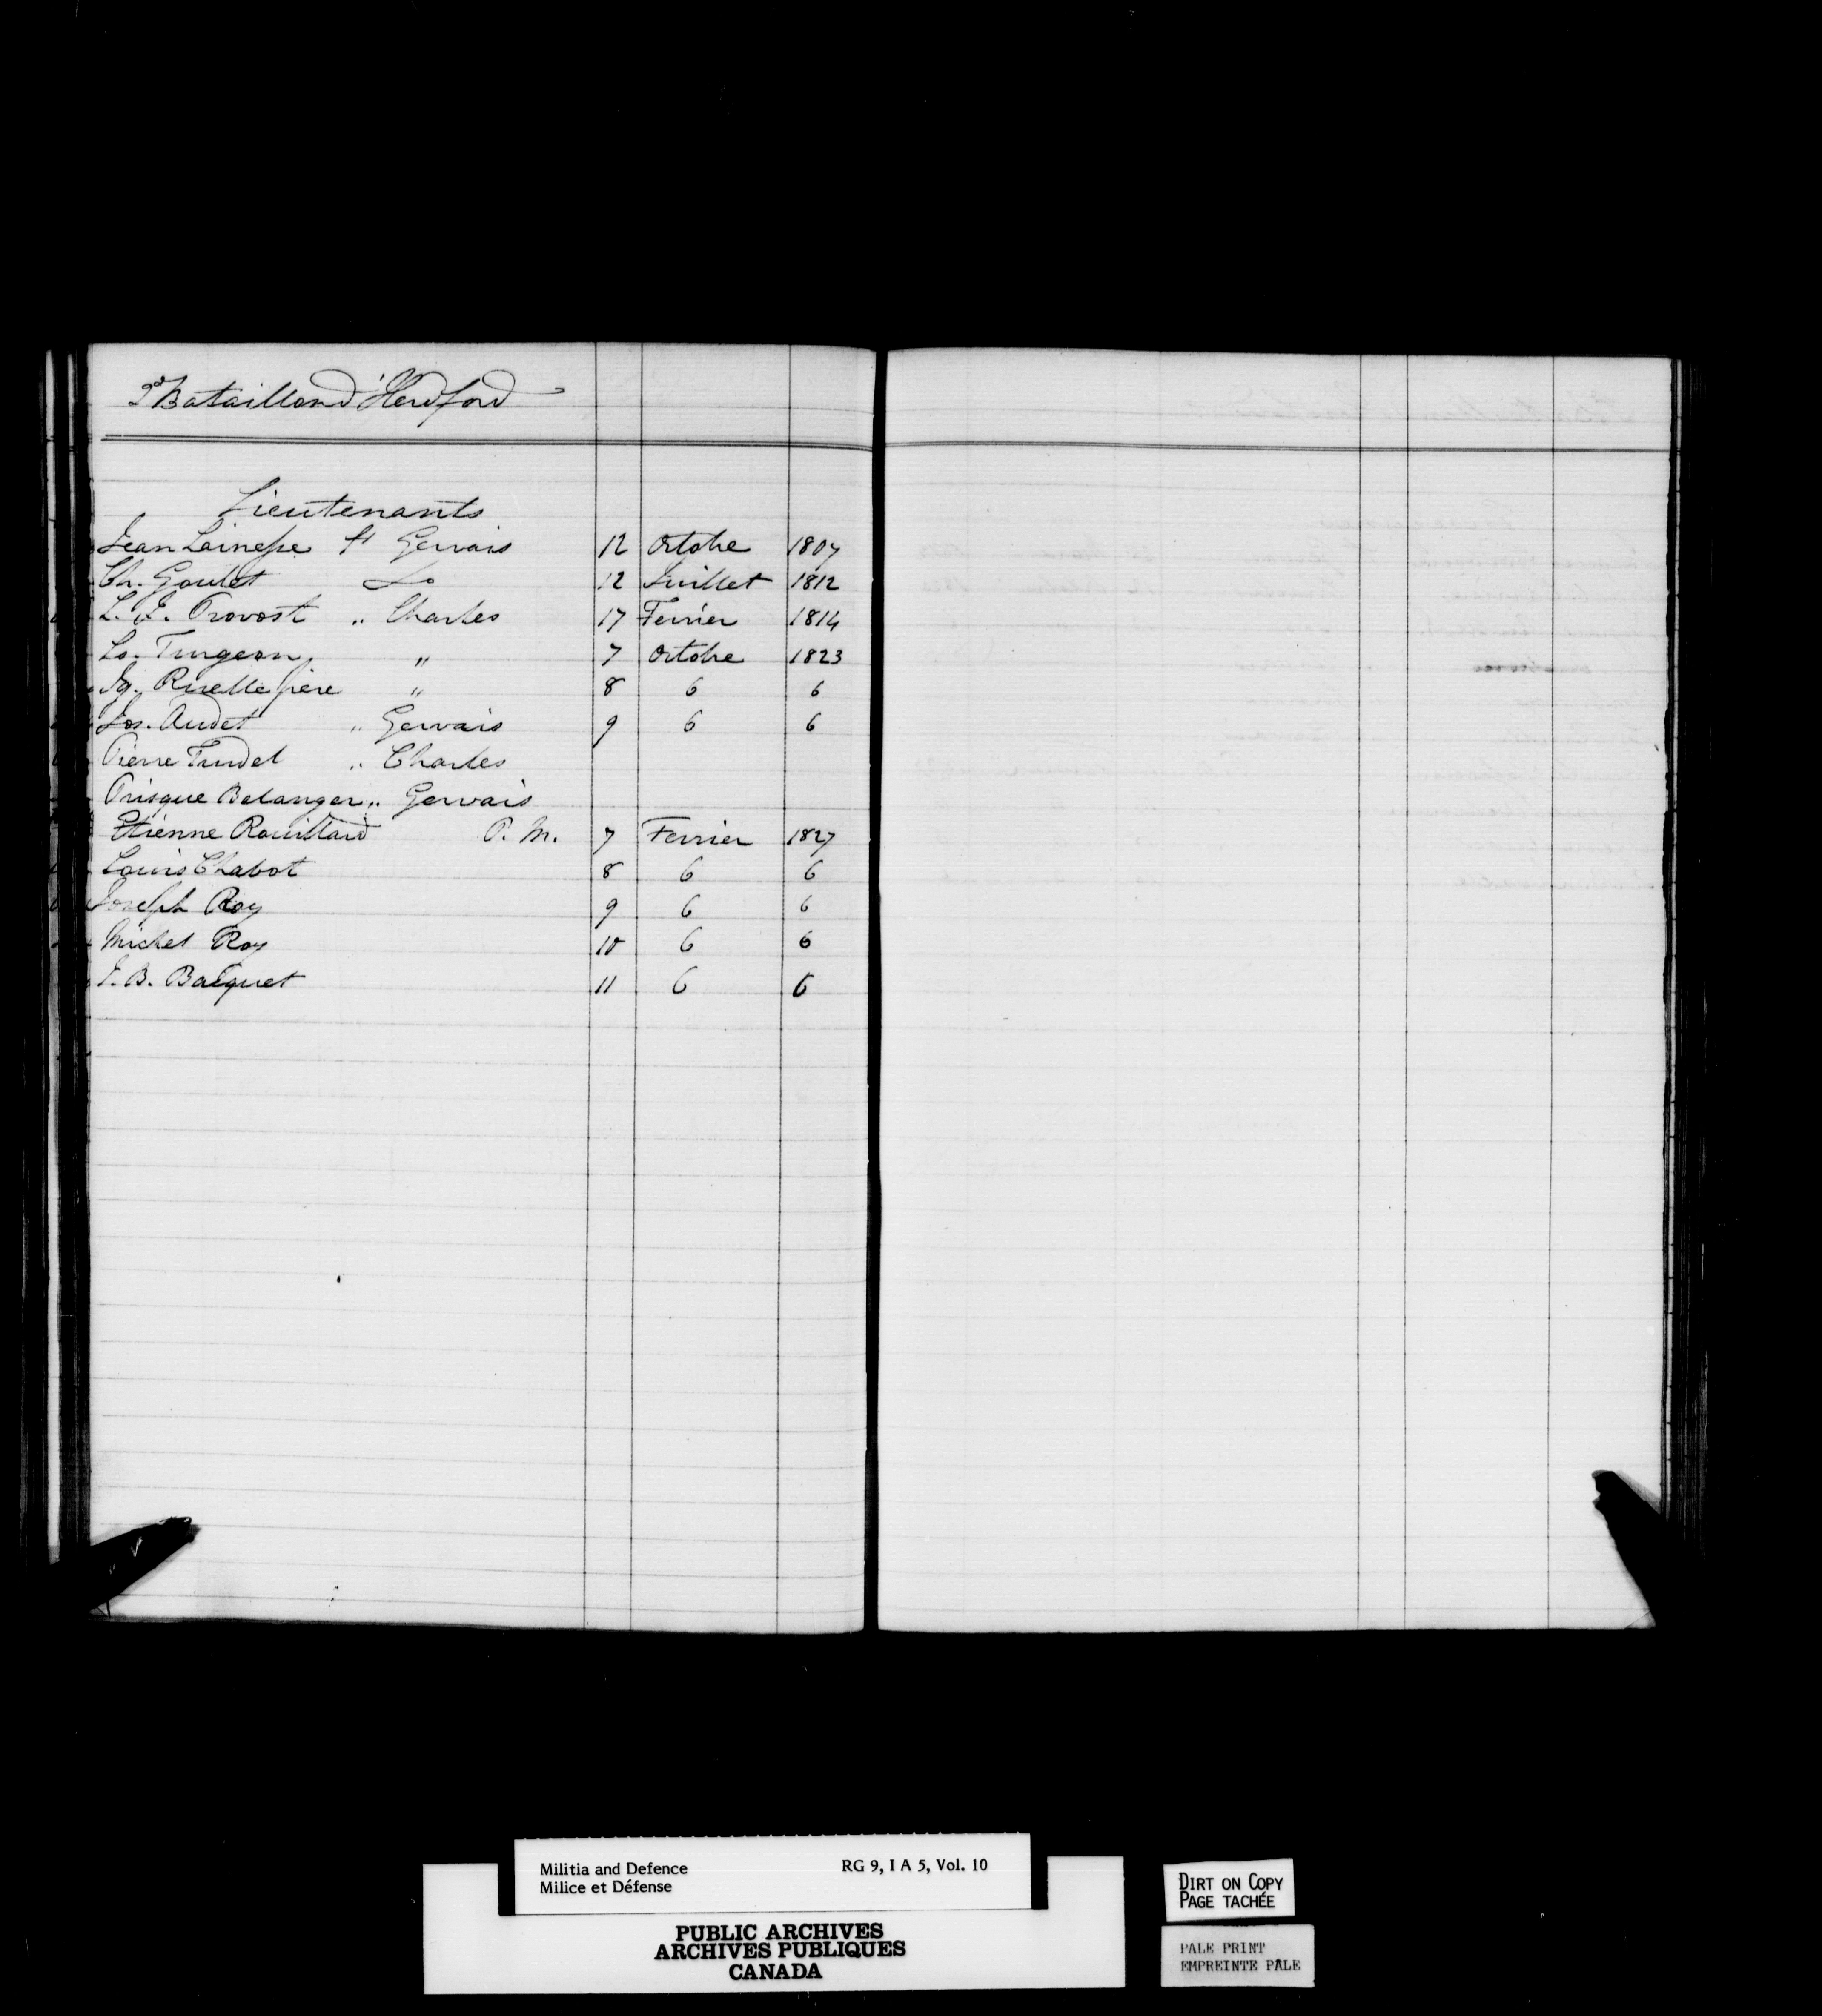 2d Bataillon d'Herdford
Lieutenants
Jean Lainesse St Gervais 12 Octobre 1807
Ch. Goulet Do 12 Juillet 1812
L. E. Provost " Charles 17 Fevrier 1814
Ls. Turgeon " 7 Octobre 1823
Ig. Ruelle père " 8 6 6
Jos. Audet " Gervais 9 6 6
Pierre Trudel " Charles
Prisque Belanger " Gervais
Etienne Rouillard P. M. 7 Fevrier 1827
Louis Chabot 8 6 6
Joseph Roy 9 6 6
Michel Roy 10 6 6
J. B. Bacquet 11 6 6
Militia and Defence RG 9, I A 5, Vol. 10
Milice et Défense
PUBLIC ARCHIVES
ARCHIVES PUBLIQUES
CANADA
DIRT ON COPY
PAGE TACHÉE
PALE PRINT
EMPREINTE PÂLE